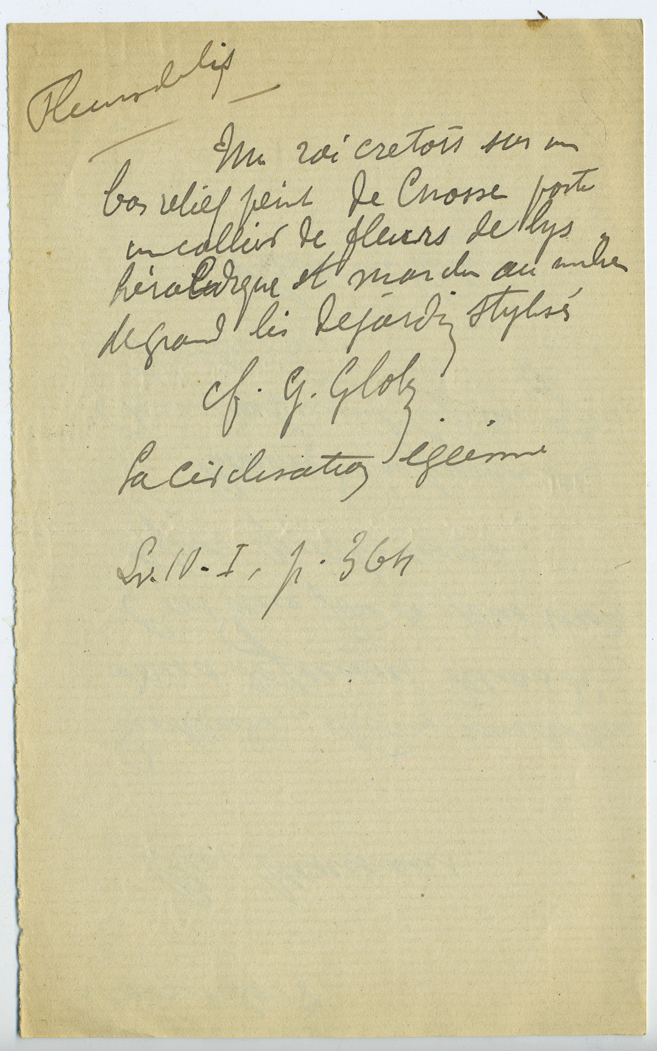 Fleurs de lis
Un roi cretois sur un
bas relief peint de Cnosse porte
un collier de fleurs de lys
héraldique et marche au milieu
de grand lis de jardin stylisés
cf. G. Glotz
La Civilisation égéenne
Lv. IV - I, p. 364